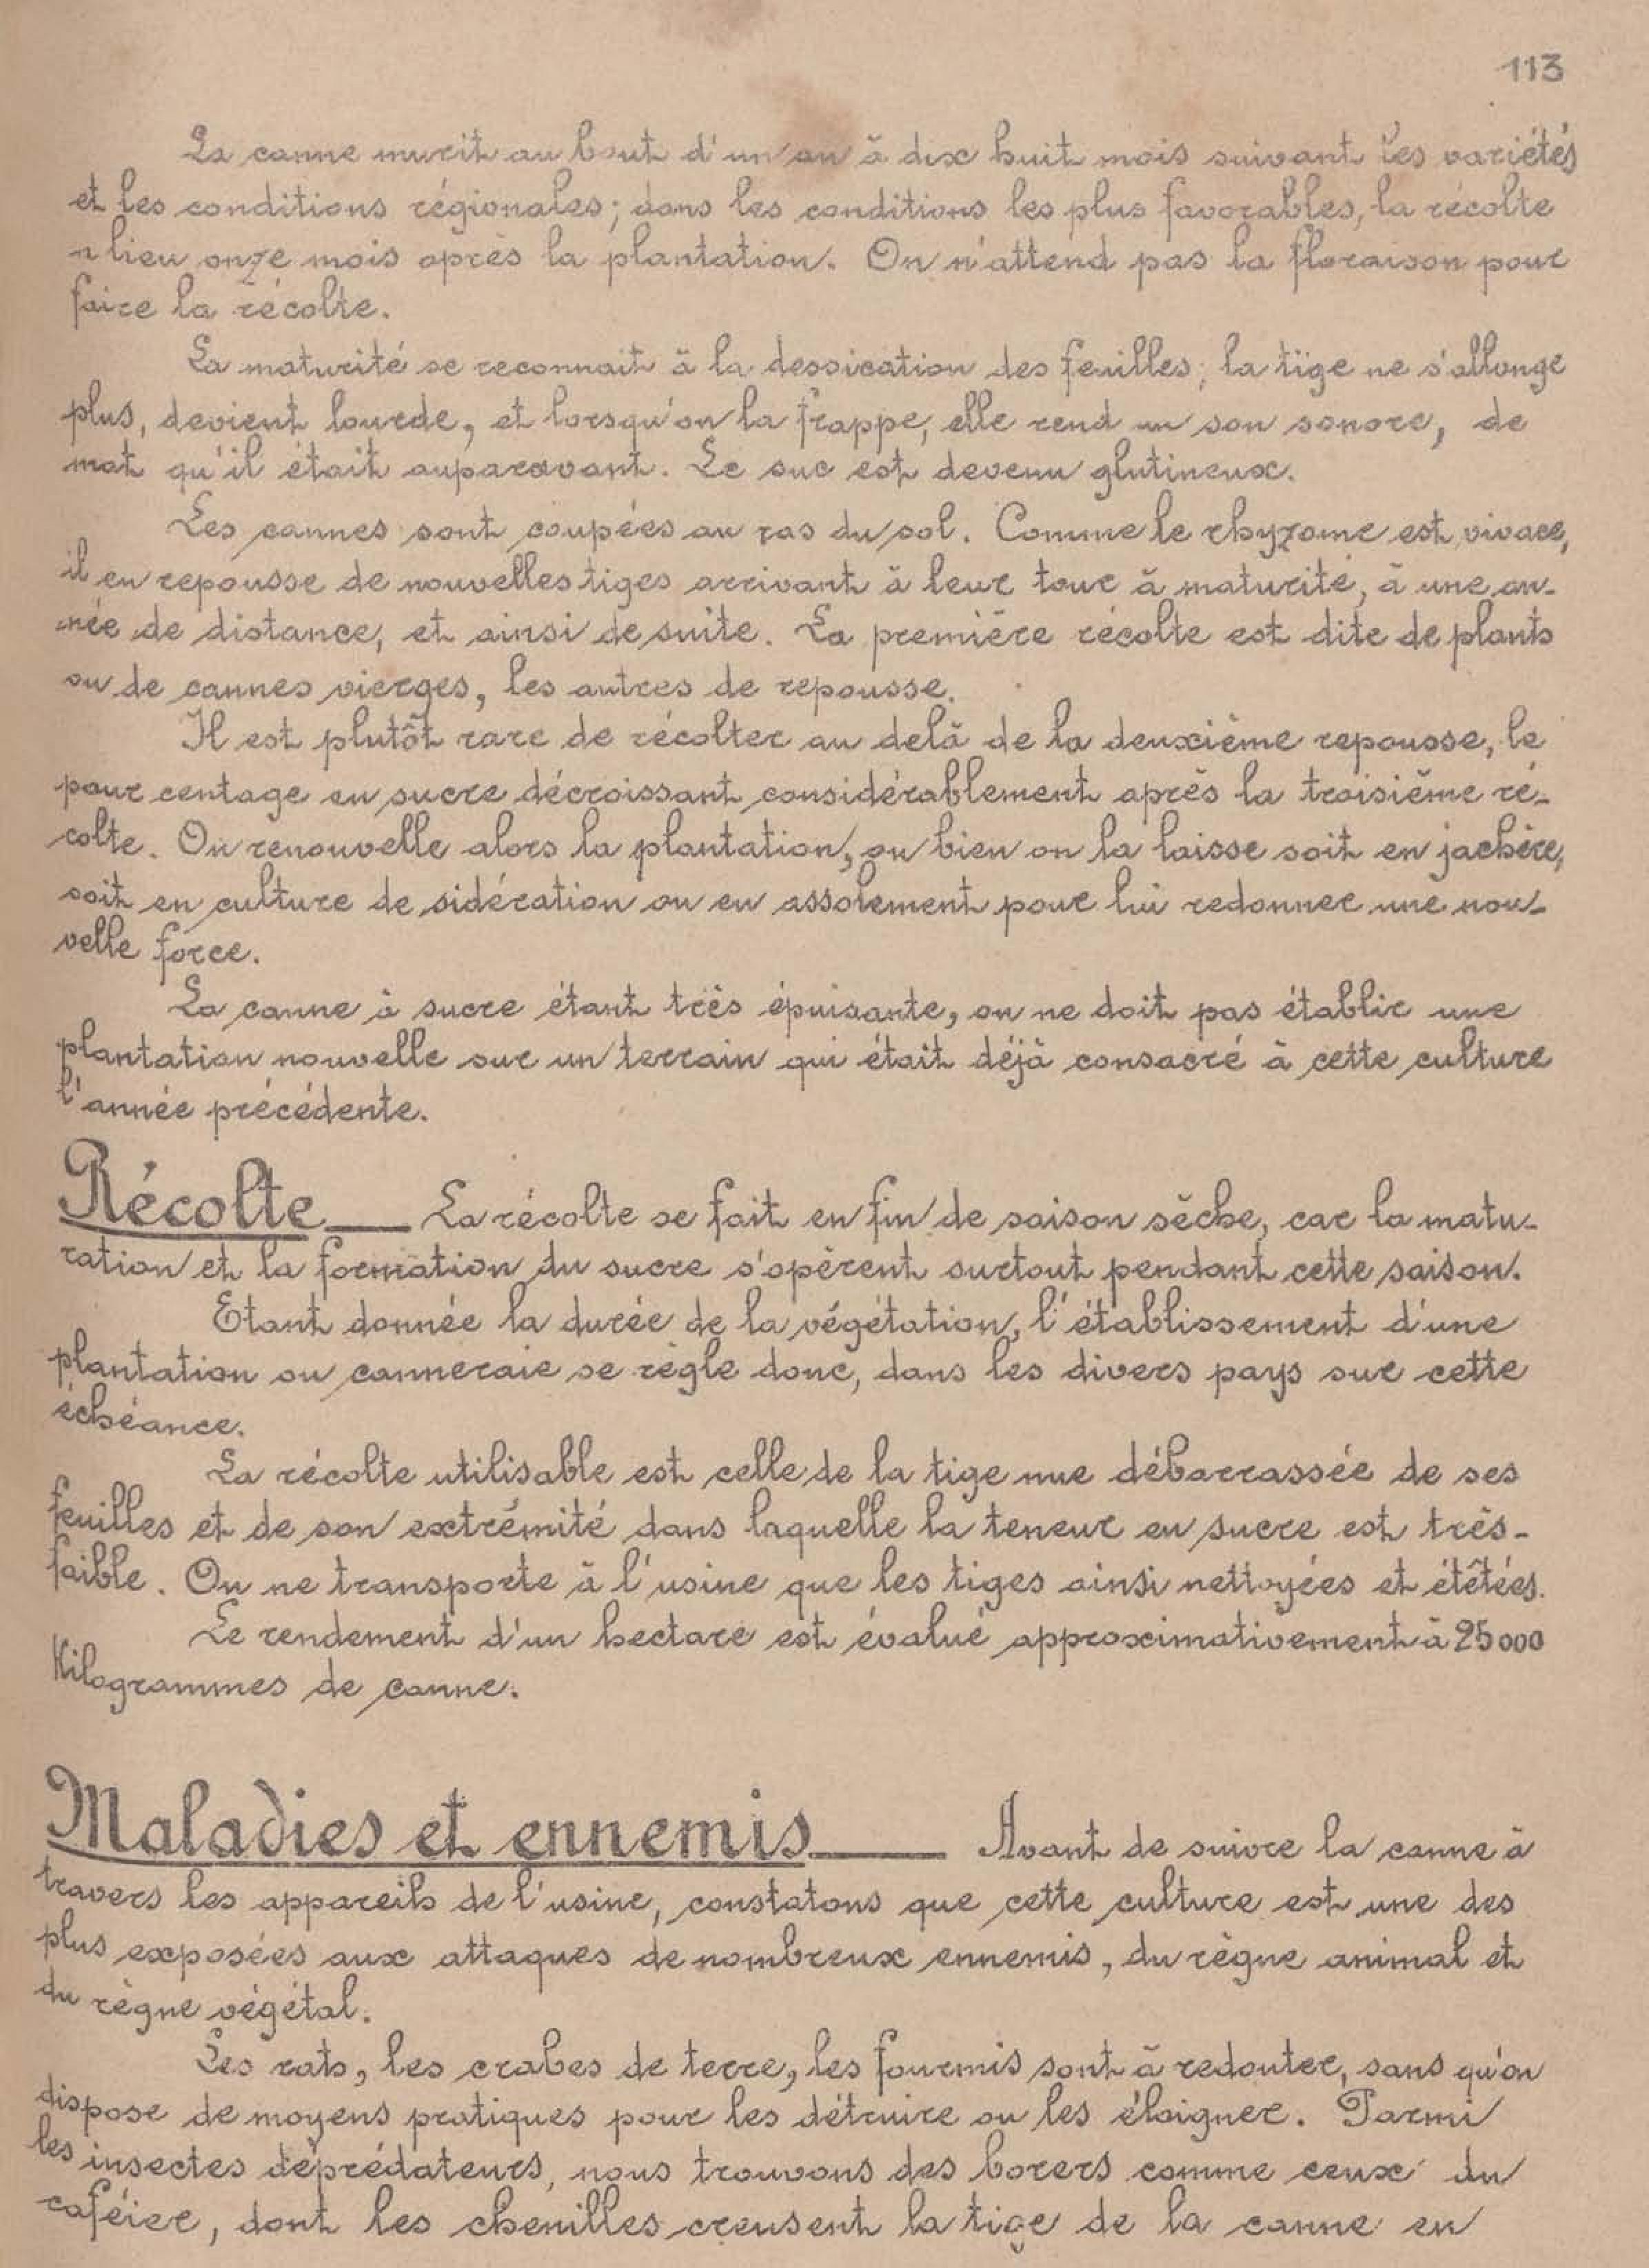 113
La canne murit au bout d'un an à dix huit mois suivant les variétés
et les conditions régionales; dans les conditions les plus favorables, la récolte
a lieu onze mois après la plantation. On n'attend pas la floraison pour
faire la récolte.
La maturité se reconnait à la dessication des feuilles; la tige ne s'allonge
plus, devient lourde, et lorsqu'on la frappe, elle rend un son sonore, de
mat qu'il était auparavant. Le suc est devenu glutineux.
Les cannes sont coupées au ras du sol. Comme le rhyzome est vivace,
il en repousse de nouvelles tiges arrivant à leur tour à maturité, à une an-
née de distance, et ainsi de suite. La première récolte est dite de plants
ou de cannes vierges, les autres de repousse.
Il est plutôt rare de récolter au delà de la deuxième repousse, le
pour centage en sucre décroissant considérablement après la troisième ré-
colte. On renouvelle alors la plantation, ou bien on la laisse soit en jachère,
soit en culture de sidération ou en assolement pour lui redonner une nou-
velle force.
La canne à sucre étant très épuisante, on ne doit pas établir une
plantation nouvelle sur un terrain qui était déjà consacré à cette culture
l'année précédente.
Récolte — La récolte se fait en fin de saison sèche, car la matu-
ration et la formation du sucre s'opèrent surtout pendant cette saison.
Etant donnée la durée de la végétation, l'établissement d'une
plantation ou canneraie se règle donc, dans les divers pays sur cette
échéance.
La récolte utilisable est celle de la tige nue débarrassée de ses
feuilles et de son extrémité dans laquelle la teneur en sucre est très-
faible. On ne transporte à l'usine que les tiges ainsi nettoyées et étêtées.
Le rendement d'un hectare est évalué approximativement à 25000
Kilogrammes de canne.
Maladies et ennemis — Avant de suivre la canne à
travers les appareils de l'usine, constatons que cette culture est une des
plus exposées aux attaques de nombreux ennemis, du règne animal et
du règne végétal.
Les rats, les crabes de terre, les fourmis sont à redouter, sans qu'on
dispose de moyens pratiques pour les détruire ou les éloigner. Parmi
les insectes déprédateurs, nous trouvons des borers comme ceux du
caféier, dont les chenilles creusent la tige de la canne en